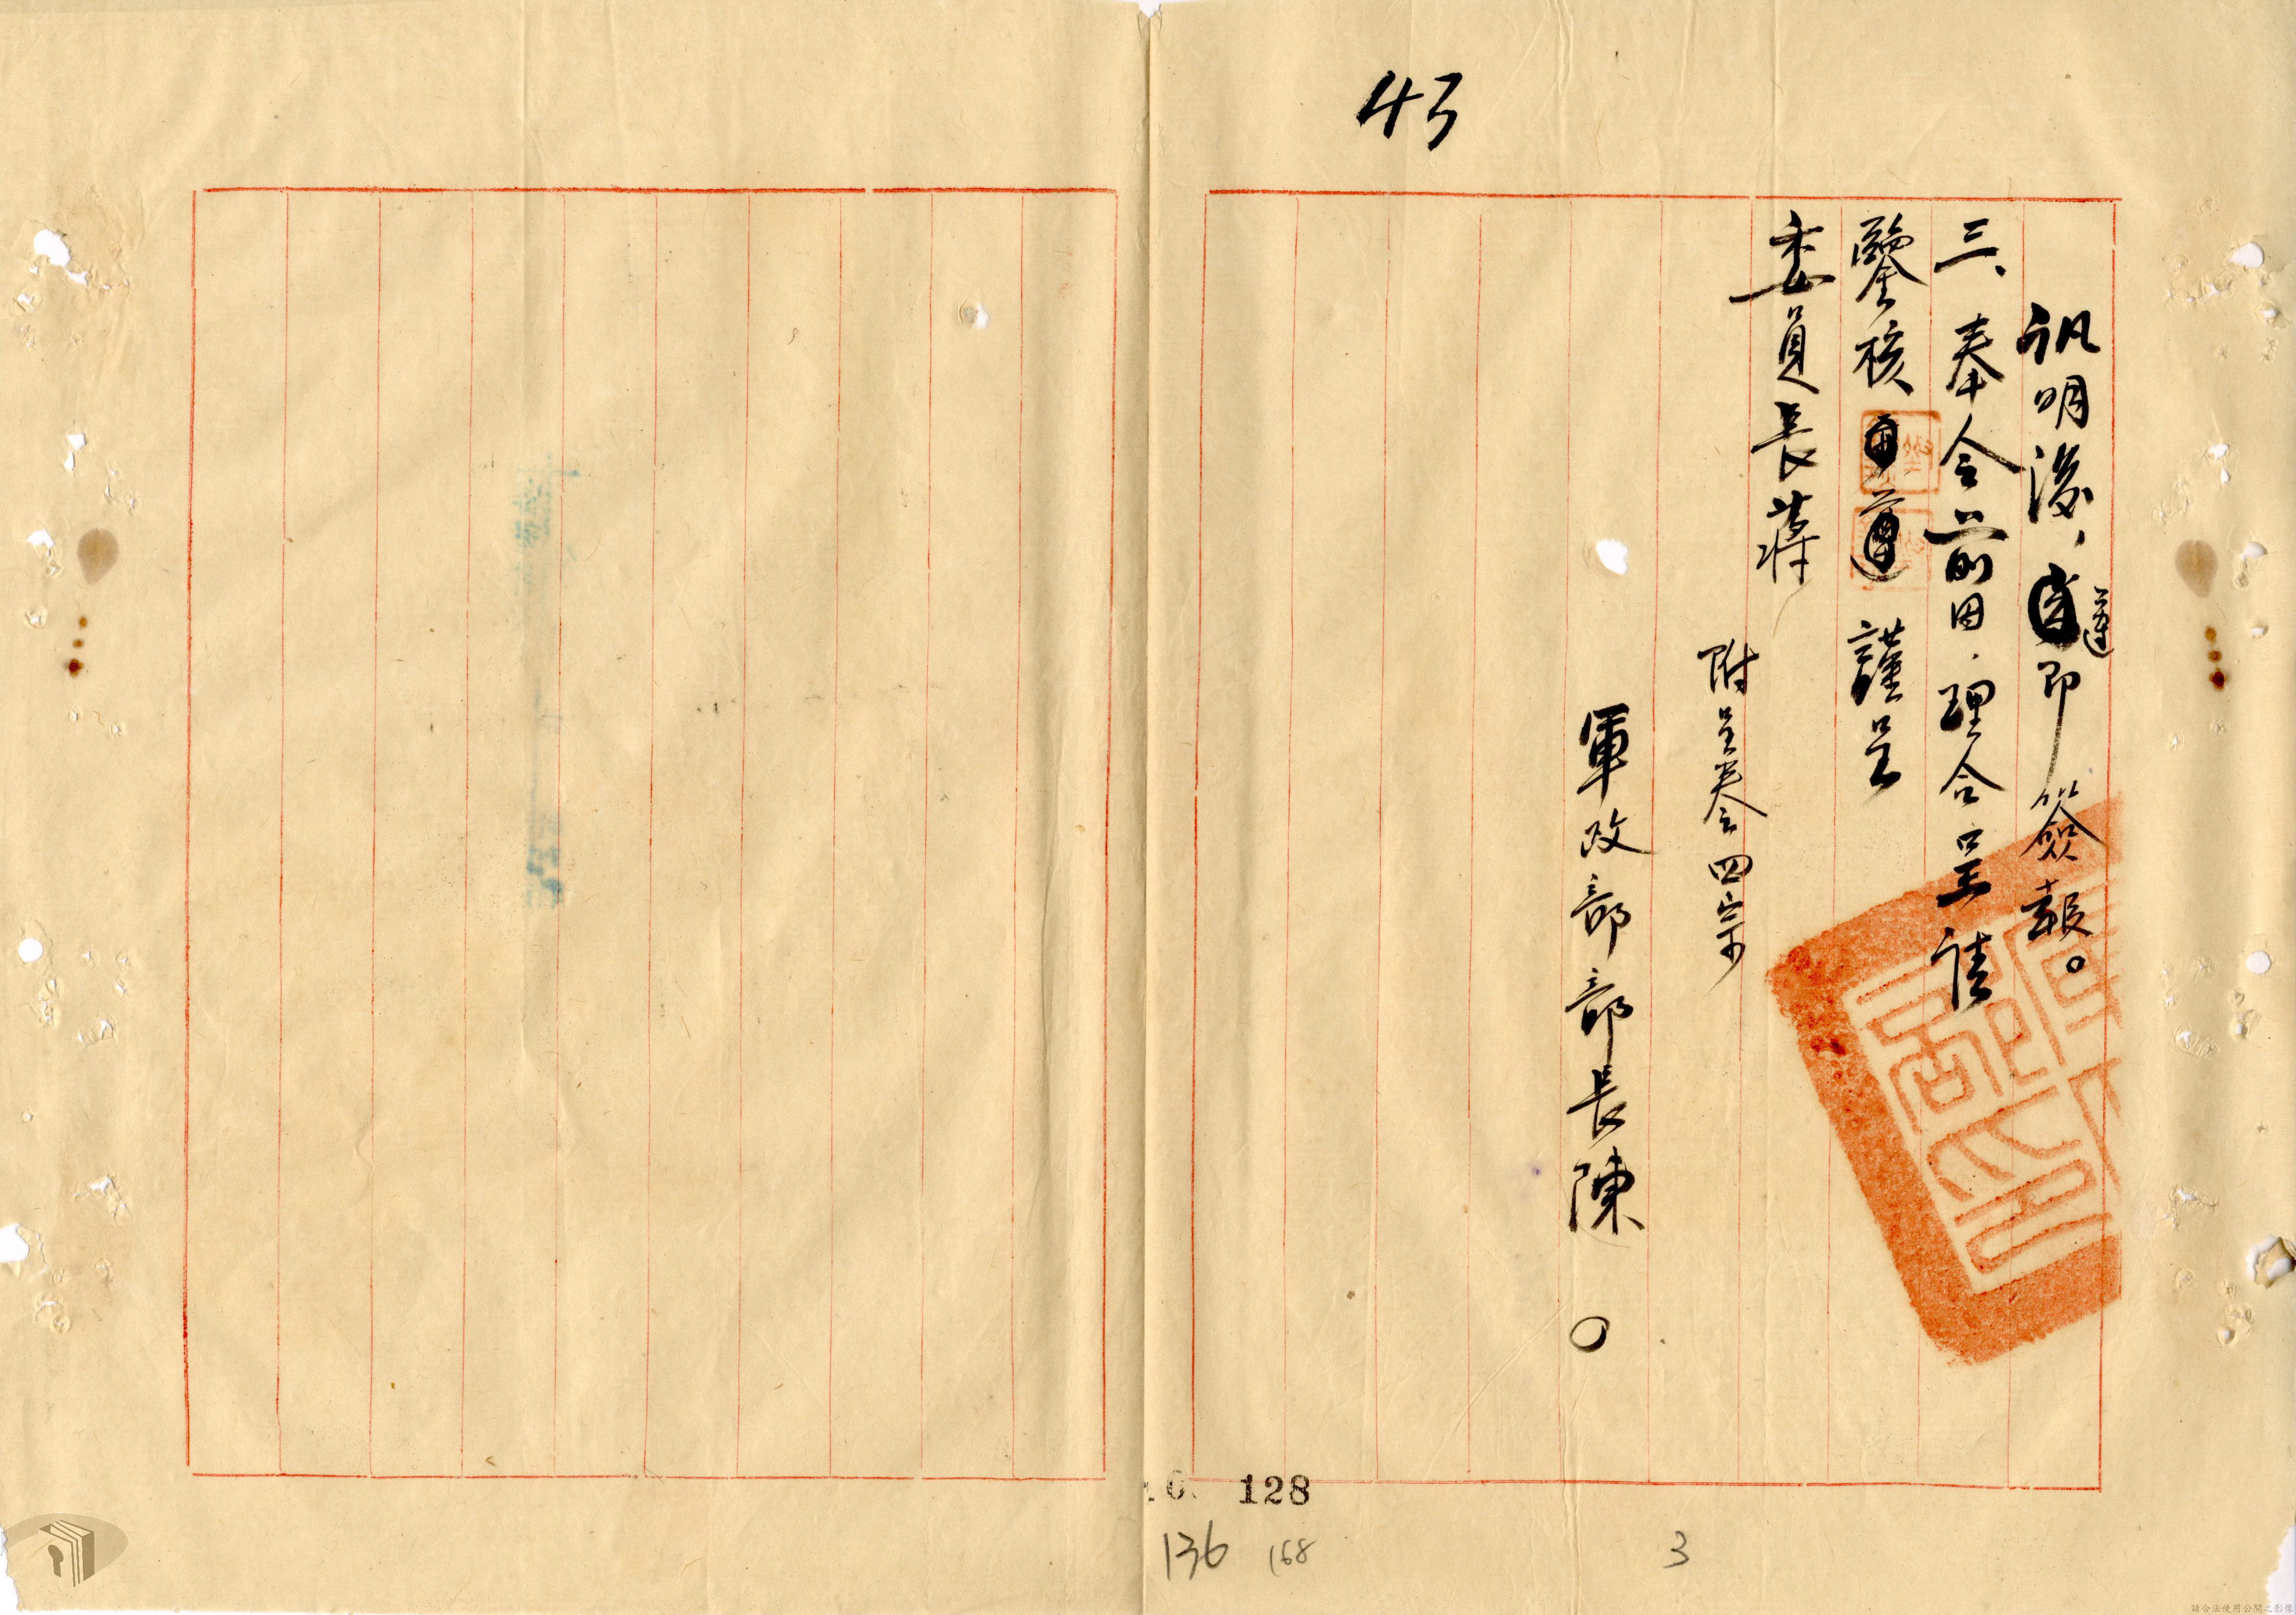 43
訊明後，遵即簽報。
三、奉令前因，理合呈請
鑒核 謹呈
委員長蔣
附呈卷四宗
軍政部部長陳〇
128
136 168
3
請合法使用公開之影像